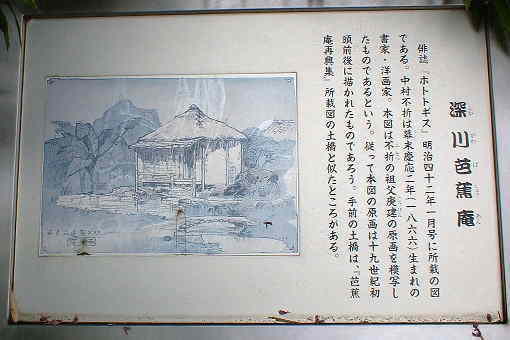 深川芭蕉庵
俳誌『ホトトギス』明治四十二年一月号に所載の図
である。中村不折は幕末慶応二年(一八六六)生まれの
書家・洋画家。本図は不折の祖父庚建の原画を模写し
たものであるという。従って本図の原画は十九世紀初
頭前後に描かれたものであろう。手前の土橋は、『芭蕉
庵再興集』所載図の土橋と似たところがある。